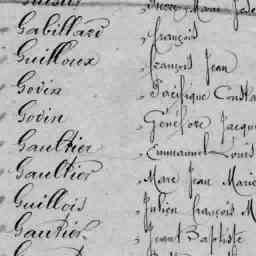 Pierre Marie Jose
Gabillard François
Guilloux François Jean
Godin Pacifique Consta
Godin Genefore Jacqu
Gaultier Emmanuel Louis
Gaultier Marc Jean Marie
Guillois Julien François M
Gautier Jean Baptiste